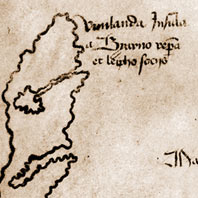 Vinlanda Insula
a Byarno repa
et leipho socijs
Ma